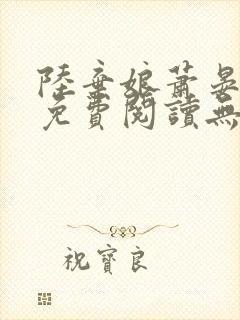 陸棄娘蕭晏
免費閱讀無
祝寶良